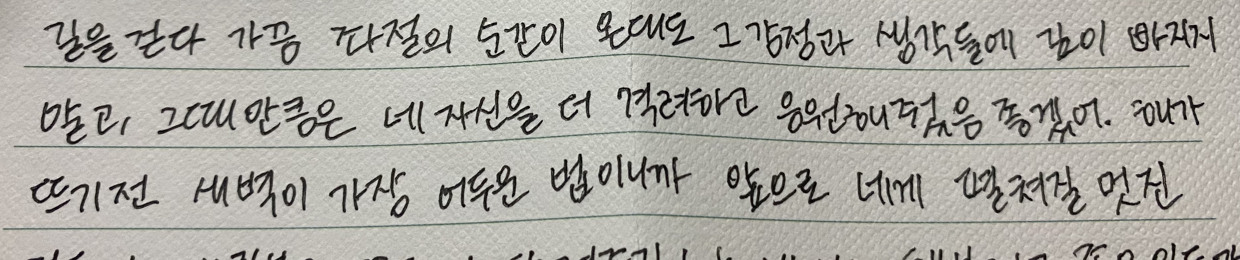 길을 걷다 가끔 좌절의 순간이 온대도 그 감정과 생각들에 깊이 빠지지
말고, 그때만큼은 네 자신을 더 격려하고 응원해줬음 좋겠어. 해가
뜨기 전 새벽이 가장 어두운 법이니까 앞으로 네게 펼쳐질 멋진